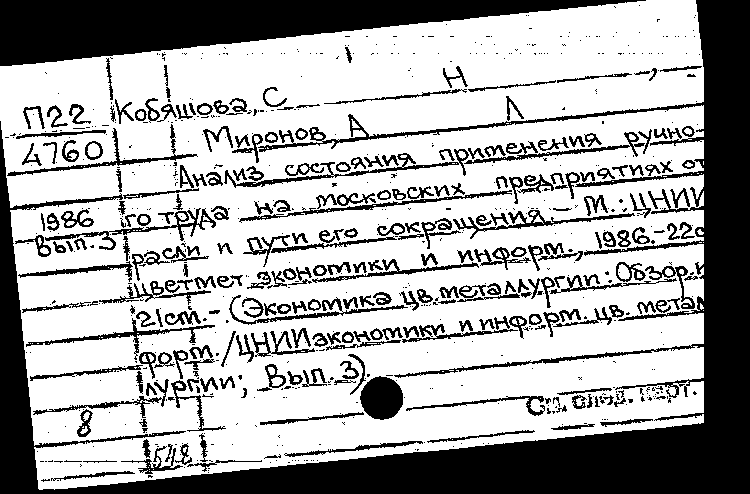 П22
4760
1986
Вып.3
Кобяшова, С Н
Миронов, А Л
Анализ состояния применения ручно-
го труда на московских предприятиях от
расли и пути его сокращения.- М.: ЦНИИ
цветмет экономики и информ., 1986.-22с
21см.- (Экономика цв. металлургии: Обзор. и
форм./ЦНИИ экономики и информ. цв. метал
лургии; Вып. 3).
См. след. карт.
8
548